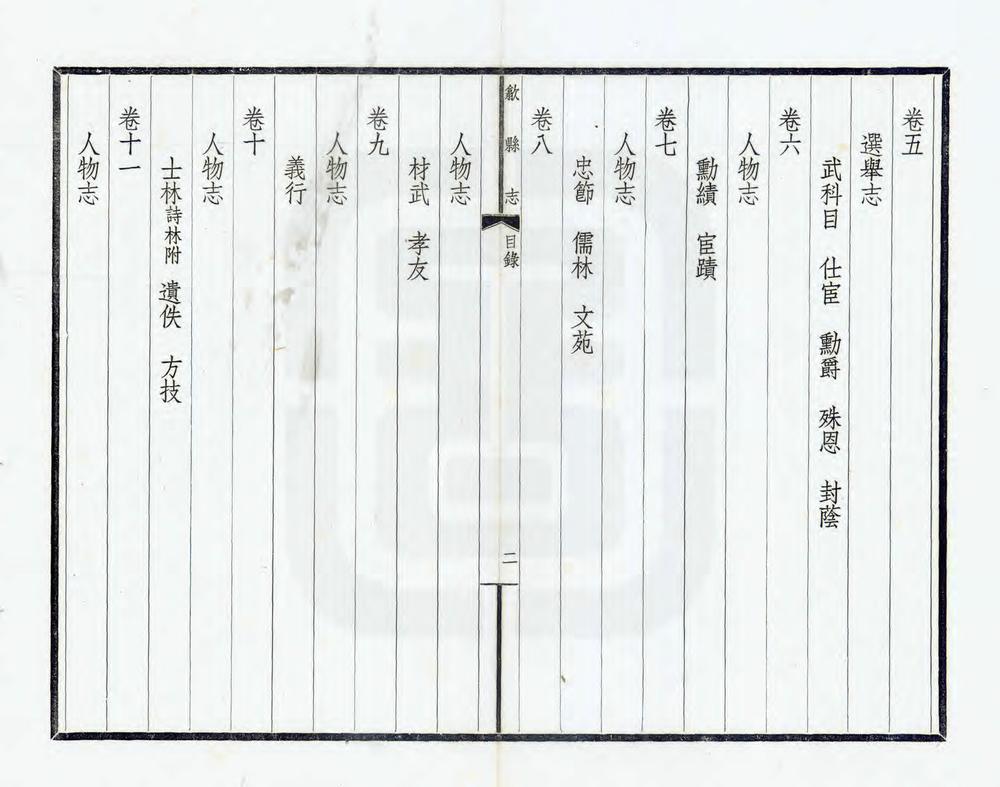 卷五
選舉志
武科目　仕宦　勳爵　殊恩　封蔭
卷六
人物志
勳績　宦蹟
卷七
人物志
忠節　儒林　文苑
卷八
歙縣志　目錄　二
人物志
材武　孝友
卷九
人物志
義行
卷十
人物志
士林詩林附　遺佚　方技
卷十一
人物志